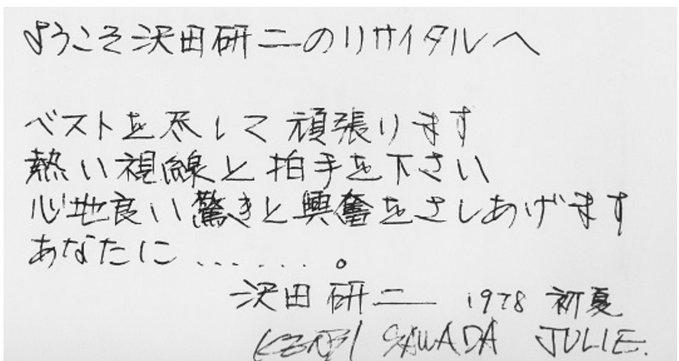 ようこそ沢田研二のリサイタルへ
ベストを尽して頑張ります
熱い視線と拍手を下さい
心地良い驚きと興奮をさしあげます
あなたに.......。
沢田研二 1978 初夏
KENJI SAWADA JULIE.